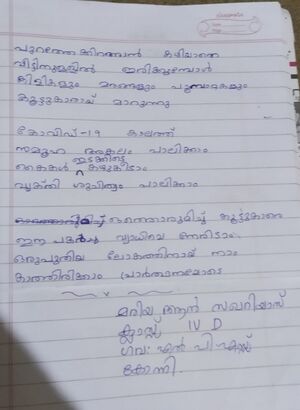 പുറത്തേക്കിറങ്ങാൻ കഴിയാതെ
വീട്ടിനുള്ളിൽ ഇരിക്കുമ്പോൾ
കിളികളും മരങ്ങളും പൂമ്പാറ്റകളും
കൂട്ടുകാരായ് മാറുന്നു
കോവിഡ്-19 കാലത്ത്
സമൂഹ അകലം പാലിക്കാം
കൈകൾ ഇടക്കിടെ കഴുകിടാം
വ്യക്തി ശുചിത്വം പാലിക്കാം
ഒത്തൊരുമിച്ച് കൂട്ടുകാരെ
ഈ പകർച്ച വ്യാധിയെ നേരിടാം
ഒരുപുതിയ ലോകത്തിനായ് നാം
കാത്തിരിക്കാം പ്രാർത്ഥനയോടെ
മരിയ ആൻ സഖറിയാസ്
ക്ലാസ്സ് IV D
ഗവ: എൽ പി എസ്സ്
കോന്നി.